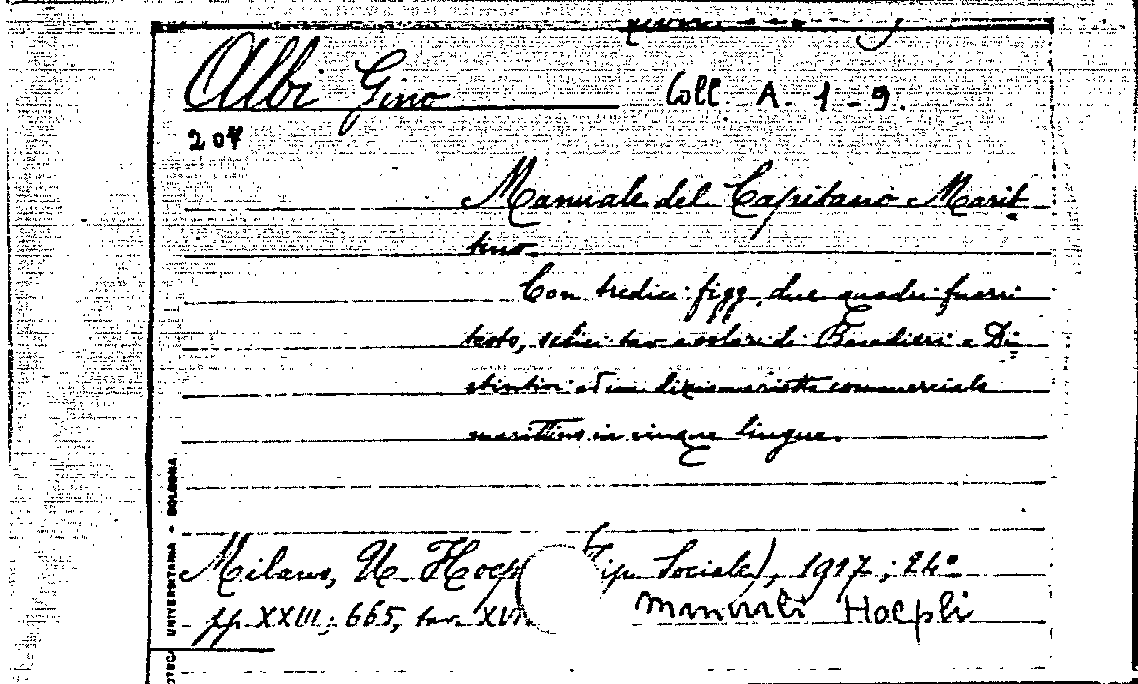 Albi Gino
Coll. A-1-9.
204
Manuale del Capitano Marit
timo
Con tredici figg., due quadri fuori
testo, sedici tav. a colori di Bandiere e Di
stintivi ed un dizionarietto commerciale
marittimo in cinque lingue.
Milano, U. Hoep (Tip. Sociale), 1917; 24°
pp. XXIII, 665, tav. XVI.
Manuali Hoepli
UNIVERSITARIA - BOLOGNA